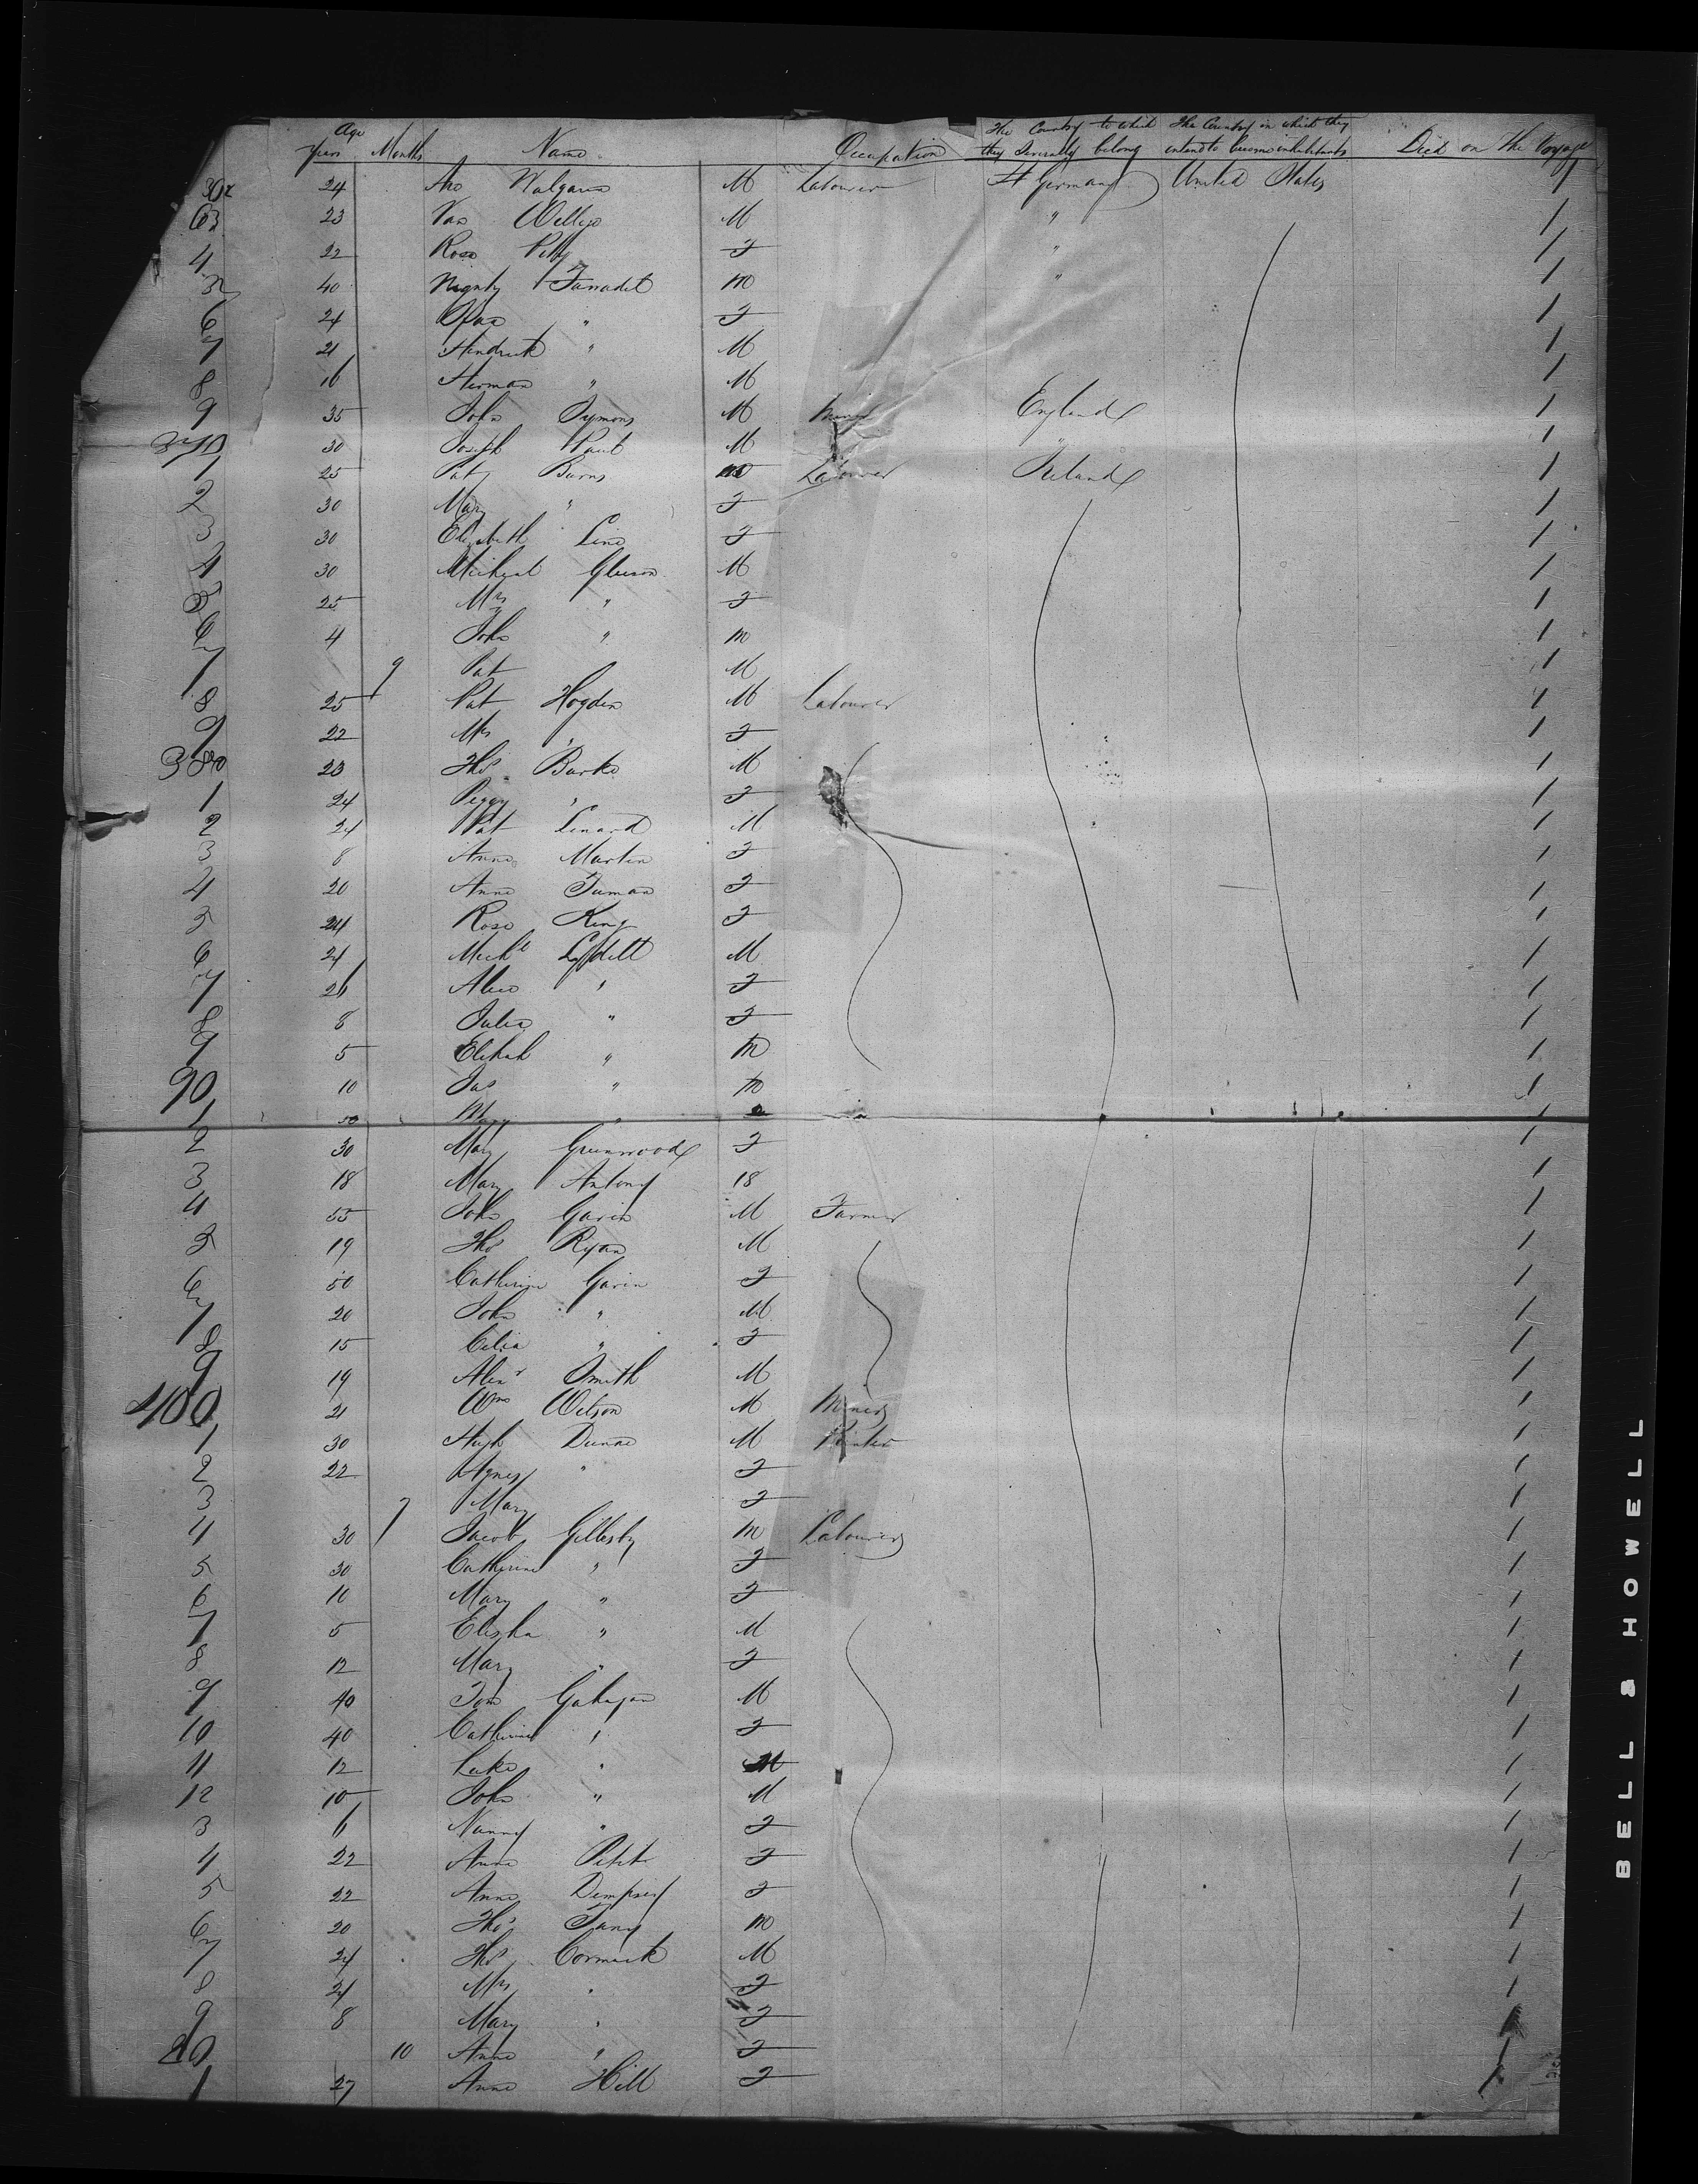 Age
Years Months Name Occupation The Country to which they Severally belong The Country in which they intend to become inhabitants Died on the Voyage
24 M Labourer Germany United States 1
63 23 M " 1
4 22 Rosa F " 1
40 M " 1
6 24 " F 1
7 21 Hendrick " M 1
8 16 Herman " M 1
9 35 John Symons M England 1
30 Joseph Paul M " 1
1 25 Pat Burns M Labourer Ireland 1
2 30 Mary " F 1
3 30 Elizabeth F 1
4 30 Micheal Gleeson M 1
5 25 Mrs " F 1
6 4 John " M 1
7 9 Pat M 1
8 25 Pat Hogden M Labourer 1
9 22 Mrs " F 1
380 23 Thos Burke M 1
1 24 Peggy " F 1
2 24 Pat Lenard M 1
3 8 Anne Martin F 1
4 20 Anne F 1
5 24 Rose King F 1
6 24 Michl M 1
7 26 Alice " F 1
8 8 Julia " F 1
9 5 " M 1
90 10 Jas " M 1
1 50 Mary " 1
2 30 Mary Greenwood F 1
3 18 Mary Antony 18 1
4 55 John Gavin M Farmer 1
5 19 Thos Ryan M 1
6 50 Catherine Gavin F 1
7 20 John " M 1
8 15 Celia " F 1
9 19 Alexr Smith M 1
400 21 Wm Wilson M Miner 1
1 30 Hugh Dunne M 1
2 22 Agnes " F 1
3 7 Mary F 1
4 30 Jacob Gillesby M Labourer 1
5 30 Catherine " F 1
6 10 Mary " F 1
7 5 Elisha " M 1
8 12 Mary " F 1
9 40 Tom Gahagan M 1
10 40 Catherine " F 1
11 12 Luke " M 1
12 10 John " M 1
3 6 Nanny " F 1
4 22 Anne Petit F 1
5 22 Anne Dempsey F 1
6 20 Thos M 1
7 24 Thos Cormack M 1
8 24 Mrs " F 1
9 8 Mary " F
20 10 Anne " F 1
1 27 Anne Hill F 1
BELL & HOWELL